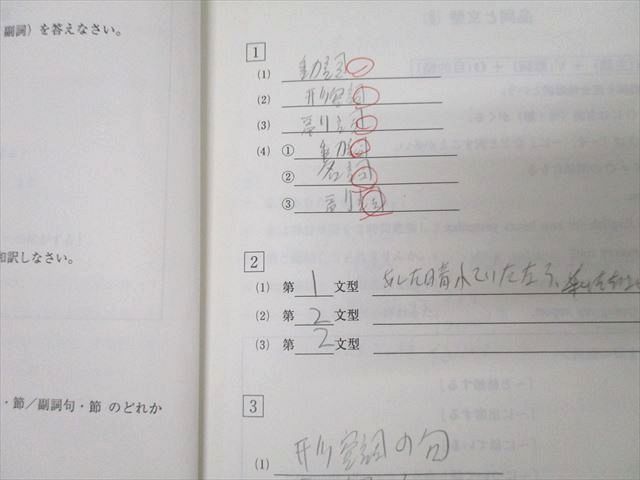 副詞）を答えなさい。
和訳しなさい。
・節／副詞句・節 のどれか
1
(1) 動詞
(2) 形容詞
(3) 副詞
(4) ① 動詞
② 名詞
③ 副詞
2
(1) 第 1 文型 あした晴れていたなら、
(2) 第 2 文型
(3) 第 2 文型
3
(1) 形容詞の句